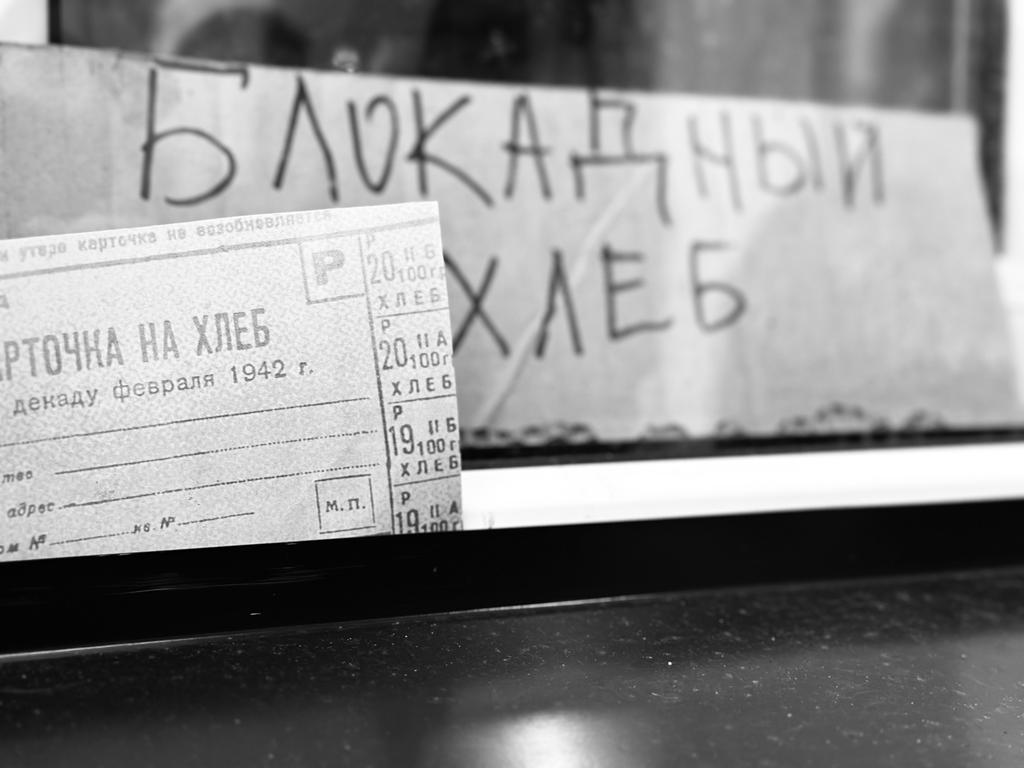 БЛОКАДНЫЙ
ХЛЕБ
утере карточка не возобновляется
Р
НА ХЛЕБ
декаду февраля 1942 г.
адрес
№ кв. №
М. П.
Р
20 II Б
100 г.
ХЛЕБ
Р
20 II А
100 г.
ХЛЕБ
Р
19 II Б
100 г.
ХЛЕБ
Р
19 II А
100 г.